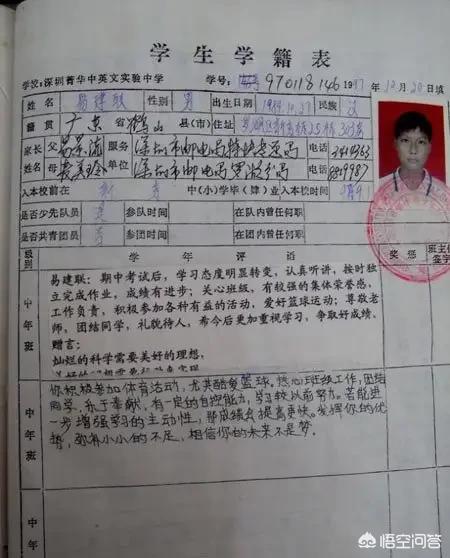 学生学籍表
学校:深圳菁华中英文实验中学 学号: 970118146 1997年10月20日填
姓名 易建联 性别 男 出生日期 1984.10.27 民族 汉
籍贯 广东省鹤山县(市) 住址
家长姓名 父 易景流 服务单位 深圳市邮电局特快专递局 电话
母 麦美玲 深圳市邮电局 电话
入本校前在 中(小)学毕(肄)业入本校时间
是否少先队员 是 参队时间 在队内曾任何职
是否共青团员 否 参团时间 在团内曾任何职
级别 学年评语 奖惩 班主任签字
中年班
易建联:期中考试后,学习态度明显转变,认真听讲,按时独
立完成作业,成绩有进步;关心班级,有较强的集体荣誉感,
工作负责,积极参加各种有益的活动,爱好篮球运动;尊敬老
师,团结同学,礼貌待人,希今后更加重视学习,争取好成绩。
赠言:
灿烂的科学需要美好的理想,
中年班
你积极参加体育活动,尤其酷爱篮球。热心班级工作,团结
同学,乐于奉献,有一定的自控能力,学习较以前努力。若能进
一步增强学习的主动性,那成绩会提高更快。发挥你的优
势,弥补小小的不足,相信你的未来不是梦。
中年
悟空问答